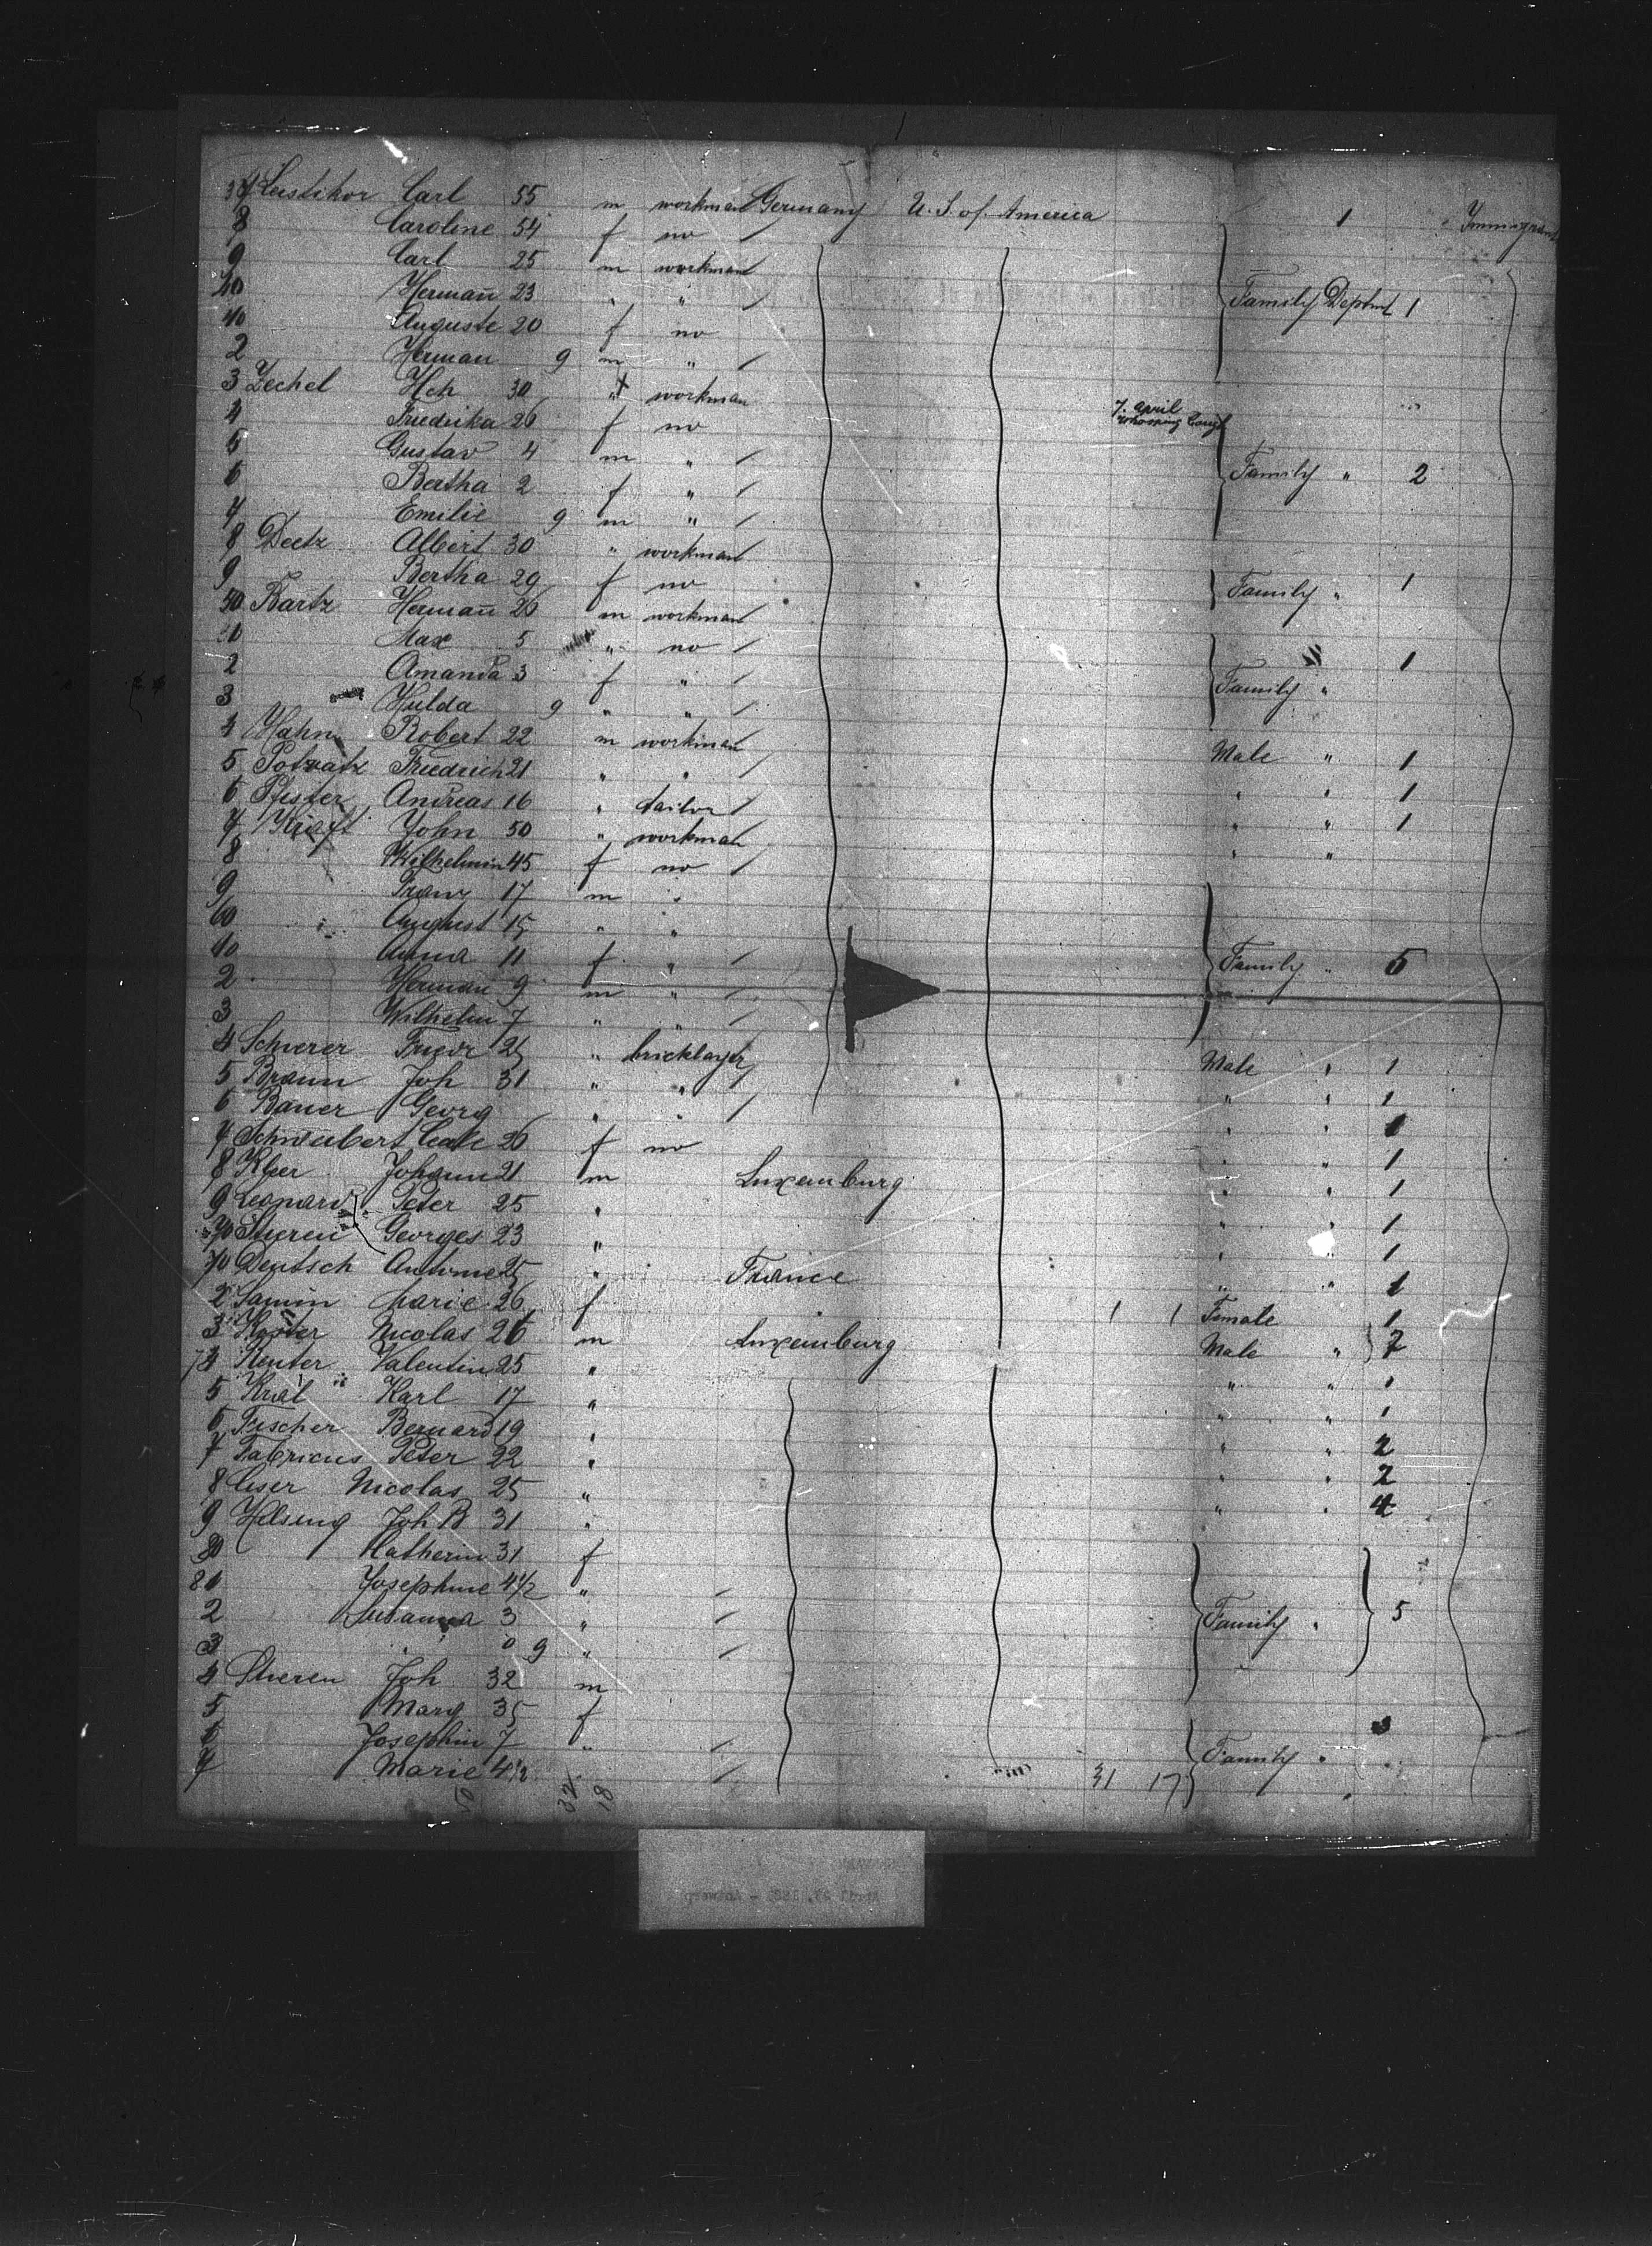 37 Leistikor Carl 55 m workman Germany U. S. of America 1 Immigrant
8 Caroline 54 f no
9 Carl 25 m workman
40 Hermañ 23 " " Family Deptmt 1
40 Auguste 20 f no
2 Herman 9 m "
3 Zechel Hch 30 " workman
4 Friedrika 26 f no 7. April Whooping Cough
5 Gustav 4 m "
6 Bertha 2 f " Family " 2
7 Emilie 9 m "
8 Deetz Albert 30 " workman
9 Bertha 29 f no Family " 1
50 Bartz Hermañ 26 m workman
50 Max 5 " no 1
2 Amanda 3 f " Family "
3 Hulda 9 " "
4 Hahn Robert 22 m workman Male " 1
5 Potratz Friedrich 21 " " " " 1
6 Pfister Andreas 16 " tailor " " 1
7 Kraft John 50 " workman " "
8 Wilhelmin 45 f no
9 Franz 17 m "
60 August 15 " "
60 Anna 11 f " Family " 5
2 Herman 9 m "
3 Wilhelm 7 " "
4 Scherer Friedr 25 " bricklayer Male " 1
5 Braun Joh 31 " " " " 1
6 Bauer Georg " " " " 1
7 26 f no " " 1
8 Kler Johann 21 m Luxemburg " 1
9 Leonard Peter 25 " " " 1
70 Stieren Georges 23 " " " 1
70 Deutsch Antoine 25 " France " " 1
2 Samin Marie 26 f 1 1 Female 1
3 Koster Nicolas 26 m Luxemburg Male " 7
74 Reuter Valentin 25 " " " 1
5 Kral Karl 17 " " " 1
6 Fischer Bernard 19 " " " 2
7 Fabricus Peter 22 " " " 2
8 Eiser Nicolas 25 " " " 4
9 Helsing Joh B 31 "
80 Katherin 31 f
80 Josephine 4½ "
2 Susanna 3 " Family " 5
3 0 9 "
4 Stieren Joh 32 m
5 Marg 35 f
6 Josephin 7 " Family "
7 Marie 4½ 31 17
32 18